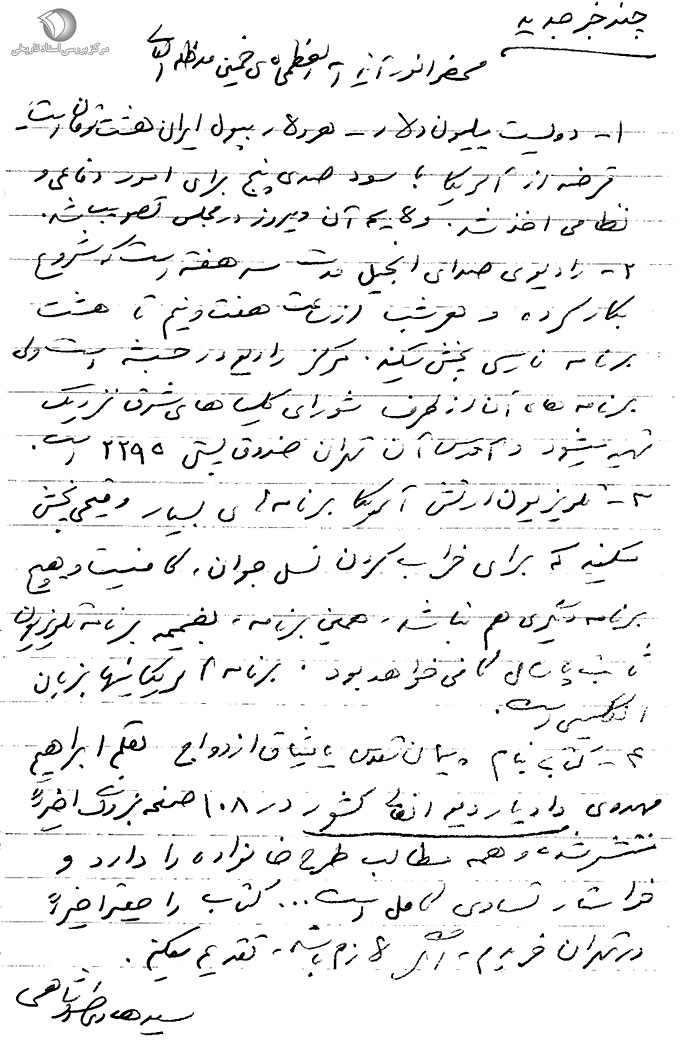 مرکز بررسی اسناد تاریخی
چند خبر جدید
محضر انور آیة الله العظمی آقای خمینی مدظله العالی
۱- دویست میلیون دلار – هر دلار بپول ایران هشت تومان است –
قرضه از آمریکا با سود صدی پنج برای امور دفاعی و
نظامی اخذ شد. و لایحه آن دیروز در مجلس تصویب شد.
۲- رادیوی صدای انجیل مدت سه هفته است که شروع
بکار کرده و هر شب از ساعت هفت و نیم تا هشت
برنامه فارسی پخش میکند. مرکز رادیو در حبشه است ولی
برنامه های آن از طرف شورای کلیساهای شرق نزدیک
تهیه میشود و آدرس آن تهران صندوق پستی ۲۲۹۵ است.
۳- تلویزیون ارتش آمریکا برنامه های بسیار وقیحی پخش
میکند که برای خراب کردن نسل جوان، کافیست و هیچ
برنامه دیگری هم نباشد، همین برنامه، بضمیمه برنامه تلویزیون
ثابت پاسال کافی خواهد بود. برنامه آمریکائیها بزبان
انگلیسی است.
۴- کتابی بنام پیمان مقدس یا میثاق ازدواج بقلم ابراهیم
مهدوی دادیار دیوانعالی کشور در ۱۰۸ صفحه بزرگ اخیراً
منتشر شده و همه مطالب طرح خانواده را دارد و
خواستار تساوی کامل است... کتاب را حقیر اخیراً
در تهران خریدم، اگر لازم باشد، تقدیم میکنم.
سید هادی خسروشاهی